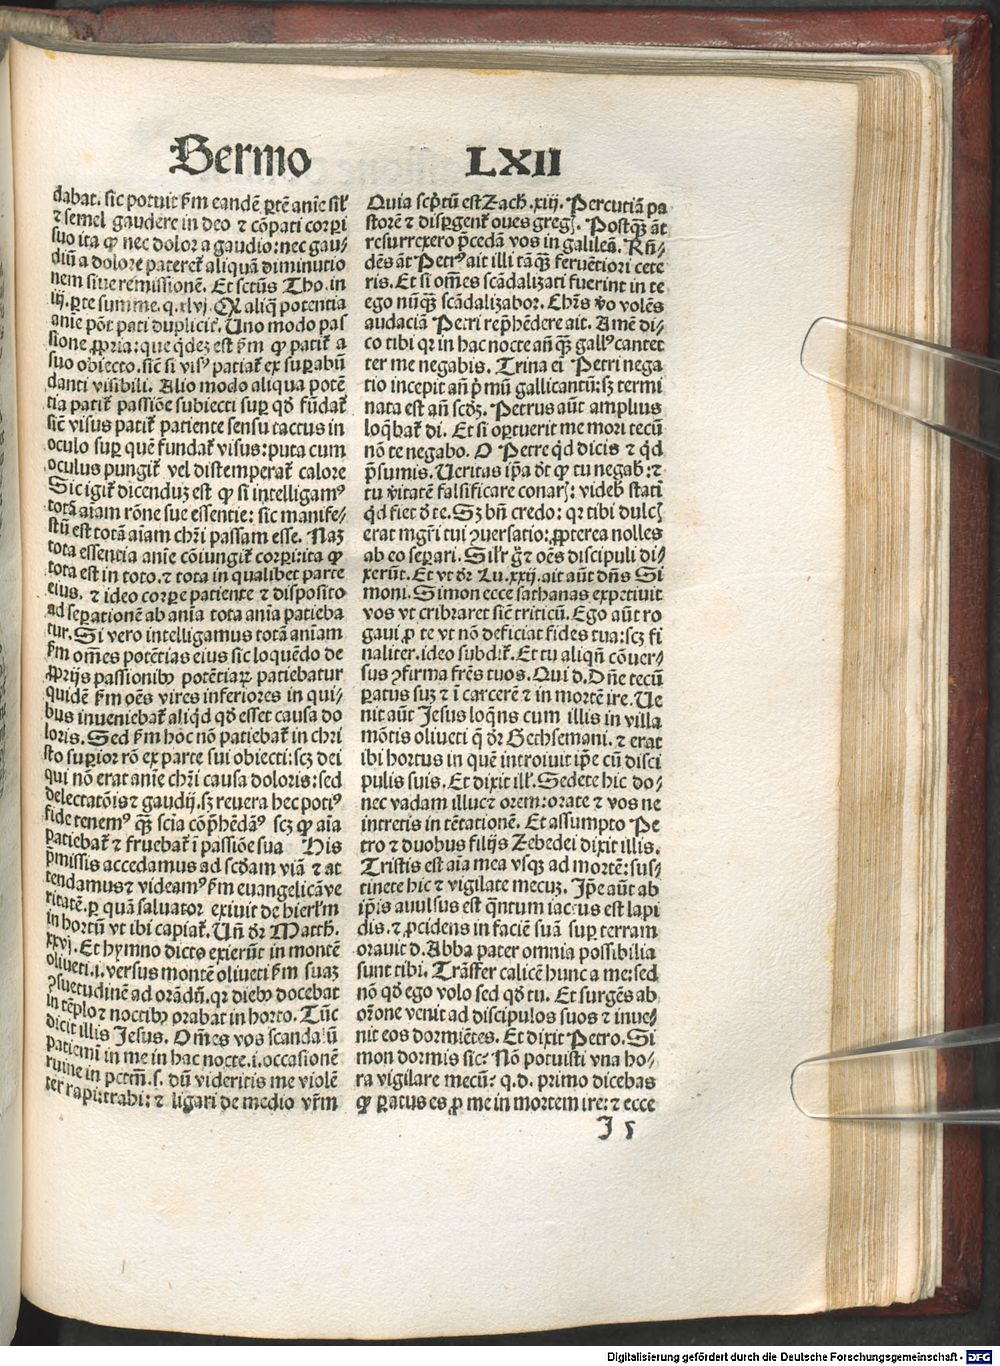 Sermo LXII
dabat. sic potuit ẜm eandē ꝑtē anīe sil̕
⁊ semel gaudere in deo ⁊ cōpati corpi
suo ita ꝙ nec dolor a gaudio: nec gau⸗
diū a dolore pateret̄ aliquā diminutio
nem siue remissionē. Et sctūs Tho. in
iij. ꝑte summe. q. xlvj. Qꝫ aliq̄ potentia
anīe pōt pati duplicit̄. Uno modo pas
sione ꝓpria: que q̄dez est ẜm ꝙ patit̄ a
suo obiecto. sic̄ si visꝰ patiat̄ ex suꝑabū
danti visibili. Alio modo aliqua potē
tia patit̄ passiōe subiecti suꝑ qð fūdat̄
sic̄ visus patit̄ patiente sensu tactus in
oculo suꝑ quē fundat̄ visus: puta cum
oculus pungit̄ vel distemperat̄ calore
Sic igit̄ dicenduz est ꝙ si intelligamꝰ
totā aīam rōne sue essentie: sic manife⸗
stū est totā aīam chr̄i passam esse. Naꝫ
tota essentia anīe cōiungit̄ corpi: ita ꝙ
tota est in toto. ⁊ tota in qualibet parte
eius. ⁊ ideo corpꝑe patiente ⁊ disposito
ad seꝑationē ab anīa tota anīa patieba
tur. Si vero intelligamus totā anīam
ẜm om̄es potētias eius sic loquēdo de
ꝓprijs passionibꝰ potētiaꝝ patiebatur
quidē ẜm oēs vires inferiores in qui⸗
bus inueniebat̄ aliq̄d qð esset causa do
loris. Sed ẜm hoc nō patiebat̄ in chri
sto suꝑior rō ex parte sui obiecti: scꝫ dei
qui nō erat anīe chr̄i causa doloris: sed
delectatōis ⁊ gaudij. sꝫ reuera hec potiꝰ
fide tenemꝰ qꝫ̄ scīa cōp̄hēdāꝰ scꝫ ꝙ aīa
patiebat̄ ⁊ fruebat̄ ī passiōe sua His
p̄missis accedamus ad scd̄am viā ⁊ at
tendamus ⁊ videamꝰ ẜm euangelicā ve
ritatē. ꝑ quā saluator exiuit de hierl̄m
in hortū vt ibi capiat̄. Un̄ dr̄ Matth.
xxvj. Et hymno dicto exierūt in montē
oliueti. i. versus montē oliueti ẜm suaꝫ
ꝯsuetudinē ad orādū. qꝛ diebꝰ docebat
in tēplo ⁊ noctibꝰ orabat in horto. Tūc
dicit illis Jesus. Om̄es vos scandalū
patiemī in me in hac nocte. i. occasionē
ruine in pctm̄. s. dū videritis me violē
ter rapi: trahi: ⁊ ligari de medio vr̄m
Quia scp̄tū est Zach. xiij. Percutiā pa
storē ⁊ disꝑgent̄ oues gregꝭ. Postqꝫ̄ āt
resurrexero p̄cedā vos in galileā. Rn̄⸗
dēs āt Petrꝰ ait illi tāqꝫ̄ feruētiori cete
ris. Et si om̄es scādalizati fuerint in te
ego nūqꝫ̄ scādalizabor. Chr̄s v̄o volēs
audaciā Petri rep̄hēdere ait. Amē di⸗
co tibi qꝛ in hac nocte an̄ qꝫ̄ gallꝰ cantet
ter me negabis. Trina eī Petri nega
tio incepit an̄ p̄mū gallicantū: sꝫ termi
nata est an̄ scd̄ꝫ. Petrus aūt amplius
loq̄bat̄ di. Et si oꝑtuerit me mori tecū
nō te negabo. O Petre q̄d dicis ⁊ q̄d
p̄sumis. Ueritas ip̄a dt̄ ꝙ tu negabꝭ: ⁊
tu v̄itatē falsificare conarꝭ: videbꝭ statī
q̄d fiet d̄ te. Sꝫ bn̄ credo: qꝛ tibi dulcꝭ
erat mgr̄i tui ꝯuersatio: ꝓpterea nolles
ab eo seꝑari. Sil̕r ḡ ⁊ oēs discipuli di⸗
xerūt. Et vt dr̄ Lu. xxij. ait aūt dn̄s Si
moni. Simon ecce sathanas expetiuit
vos vt cribraret sic̄ triticū. Ego aūt ro
gaui ꝓ te vt nō deficiat fides tua: scꝫ fi
naliter. ideo subdit̄. Et tu aliqn̄ cōuer⸗
sus ꝯfirma fr̄es tuos. Qui d. Dn̄e tecū
ꝑatus suꝫ ⁊ ī carcerē ⁊ in mortē ire. Ue
nit aūt Jesus loq̄ns cum illis in villa
mōtis oliueti q̄ dr̄ Gethsemani. ⁊ erat
ibi hortus in quē introiuit ip̄e cū disci
pulis suis. Et dixit ill̕. Sedete hic do⸗
nec vadam illuc ⁊ orem: orate ⁊ vos ne
intretis in tētationē. Et assumpto Pe
tro ⁊ duobus filijs Zebedei dixit illis.
Tristis est aīa mea vsqꝫ ad mortē: sus⸗
tinete hic ⁊ vigilate mecuꝫ. Ip̄e aūt ab
ip̄is auulsus est q̄ntum iactus est lapi
dis. ⁊ ꝓcidens in faciē suā suꝑ terram
orauit d. Abba pater omnia possibilia
sunt tibi. Trāsfer calicē hunc a me: sed
nō qð ego volo sed qð tu. Et surgēs ab
or̄one venit ad discipulos suos ⁊ inue⸗
nit eos dormiētes. Et dixit Petro. Si
mon dormis sic? Nō potuisti vna ho⸗
ra vigilare mecū? q. d. primo dicebas
ꝙ ꝑatus es ꝓ me in mortem ire: ⁊ ecce
I 5
Digitalisierung gefördert durch die Deutsche Forschungsgemeinschaft - DFG